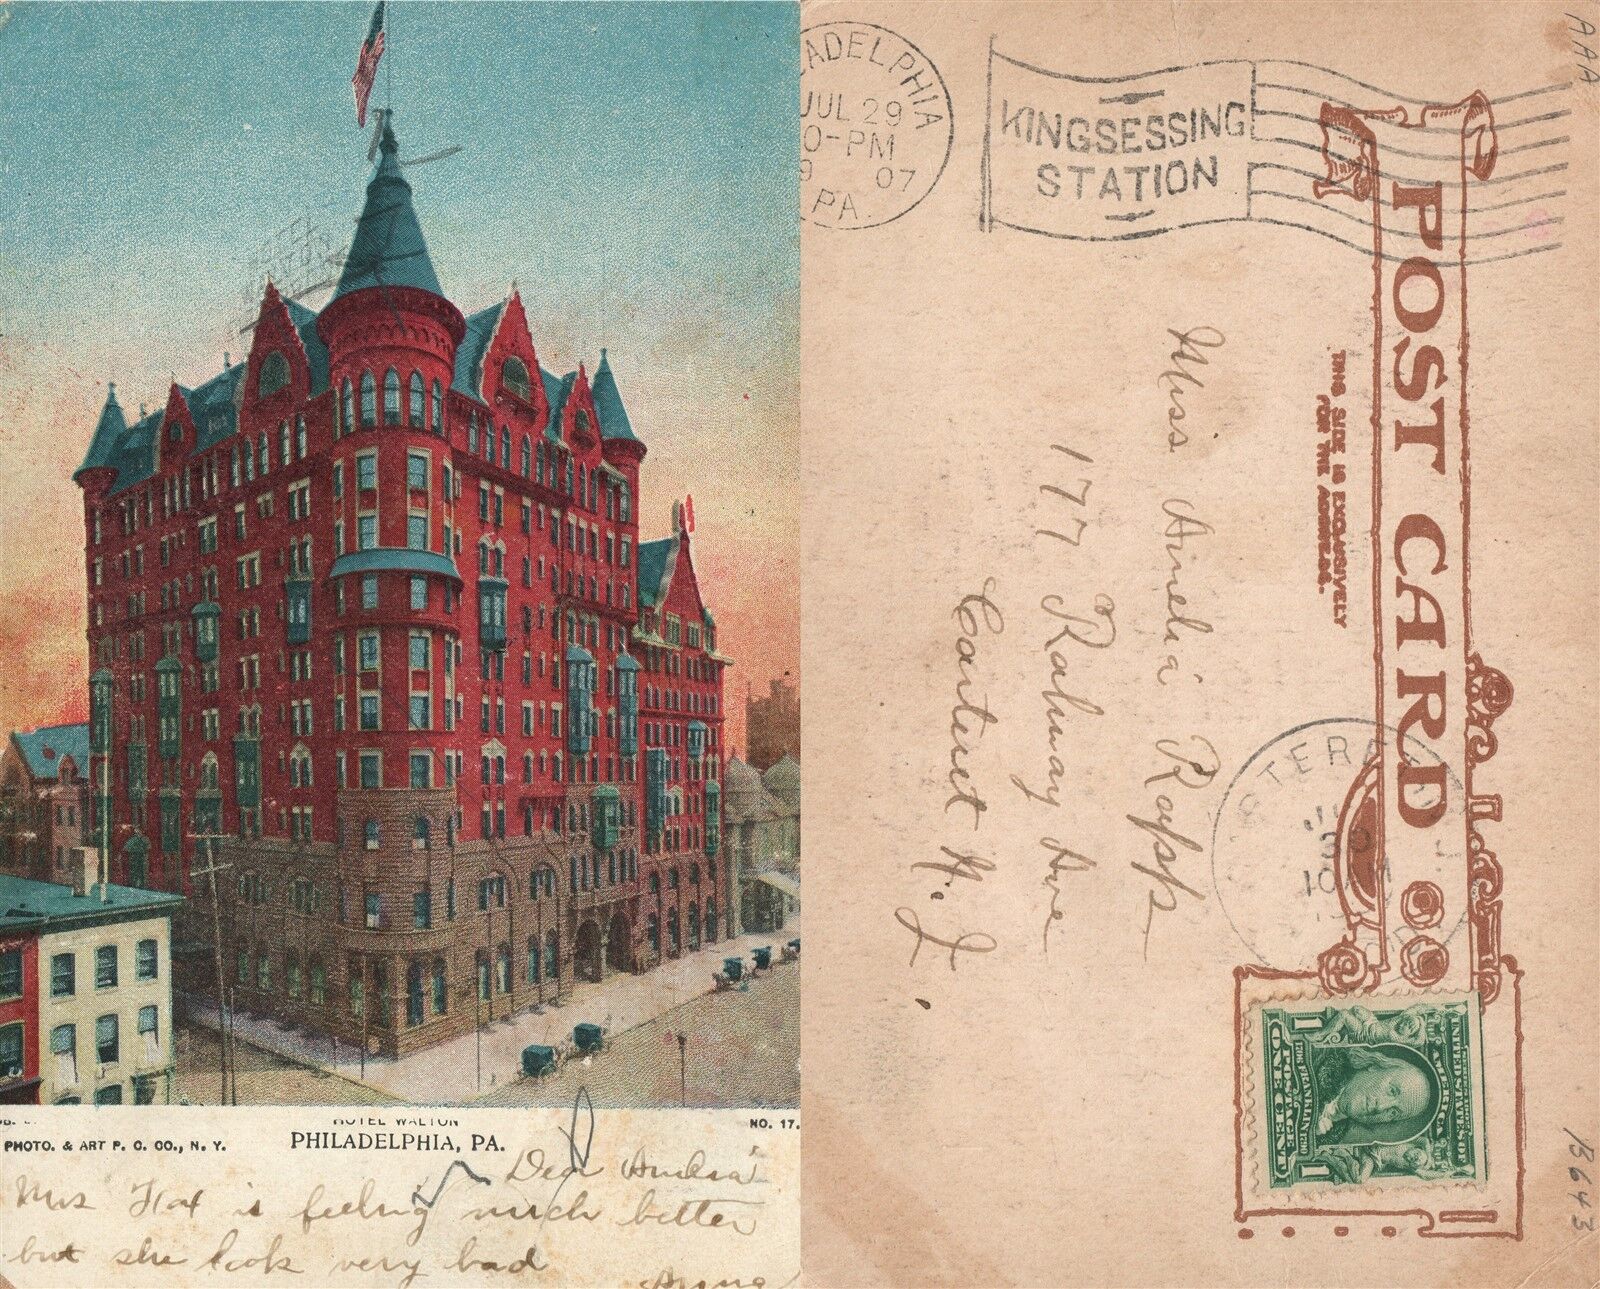 HOTEL WALTON
PHOTO. & ART P. C. CO., N. Y.
PHILADELPHIA, PA.
NO. 17.
Dear Amelia
Mrs is feeling much better
but she look very bad
Anna
ADELPHIA
JUL 29
0-PM
9 07
PA.
KINGSESSING
STATION
AAA
POST CARD
THIS SIDE IS EXCLUSIVELY
FOR THE ADDRESS.
Miss Amelia Rapp
177 Rahway Ave
Carteret N. J.
RTERE
30
10 AM
UNITED STATES OF AMERICA
FRANKLIN
POSTAGE
1 ONE CENT 1
B6643